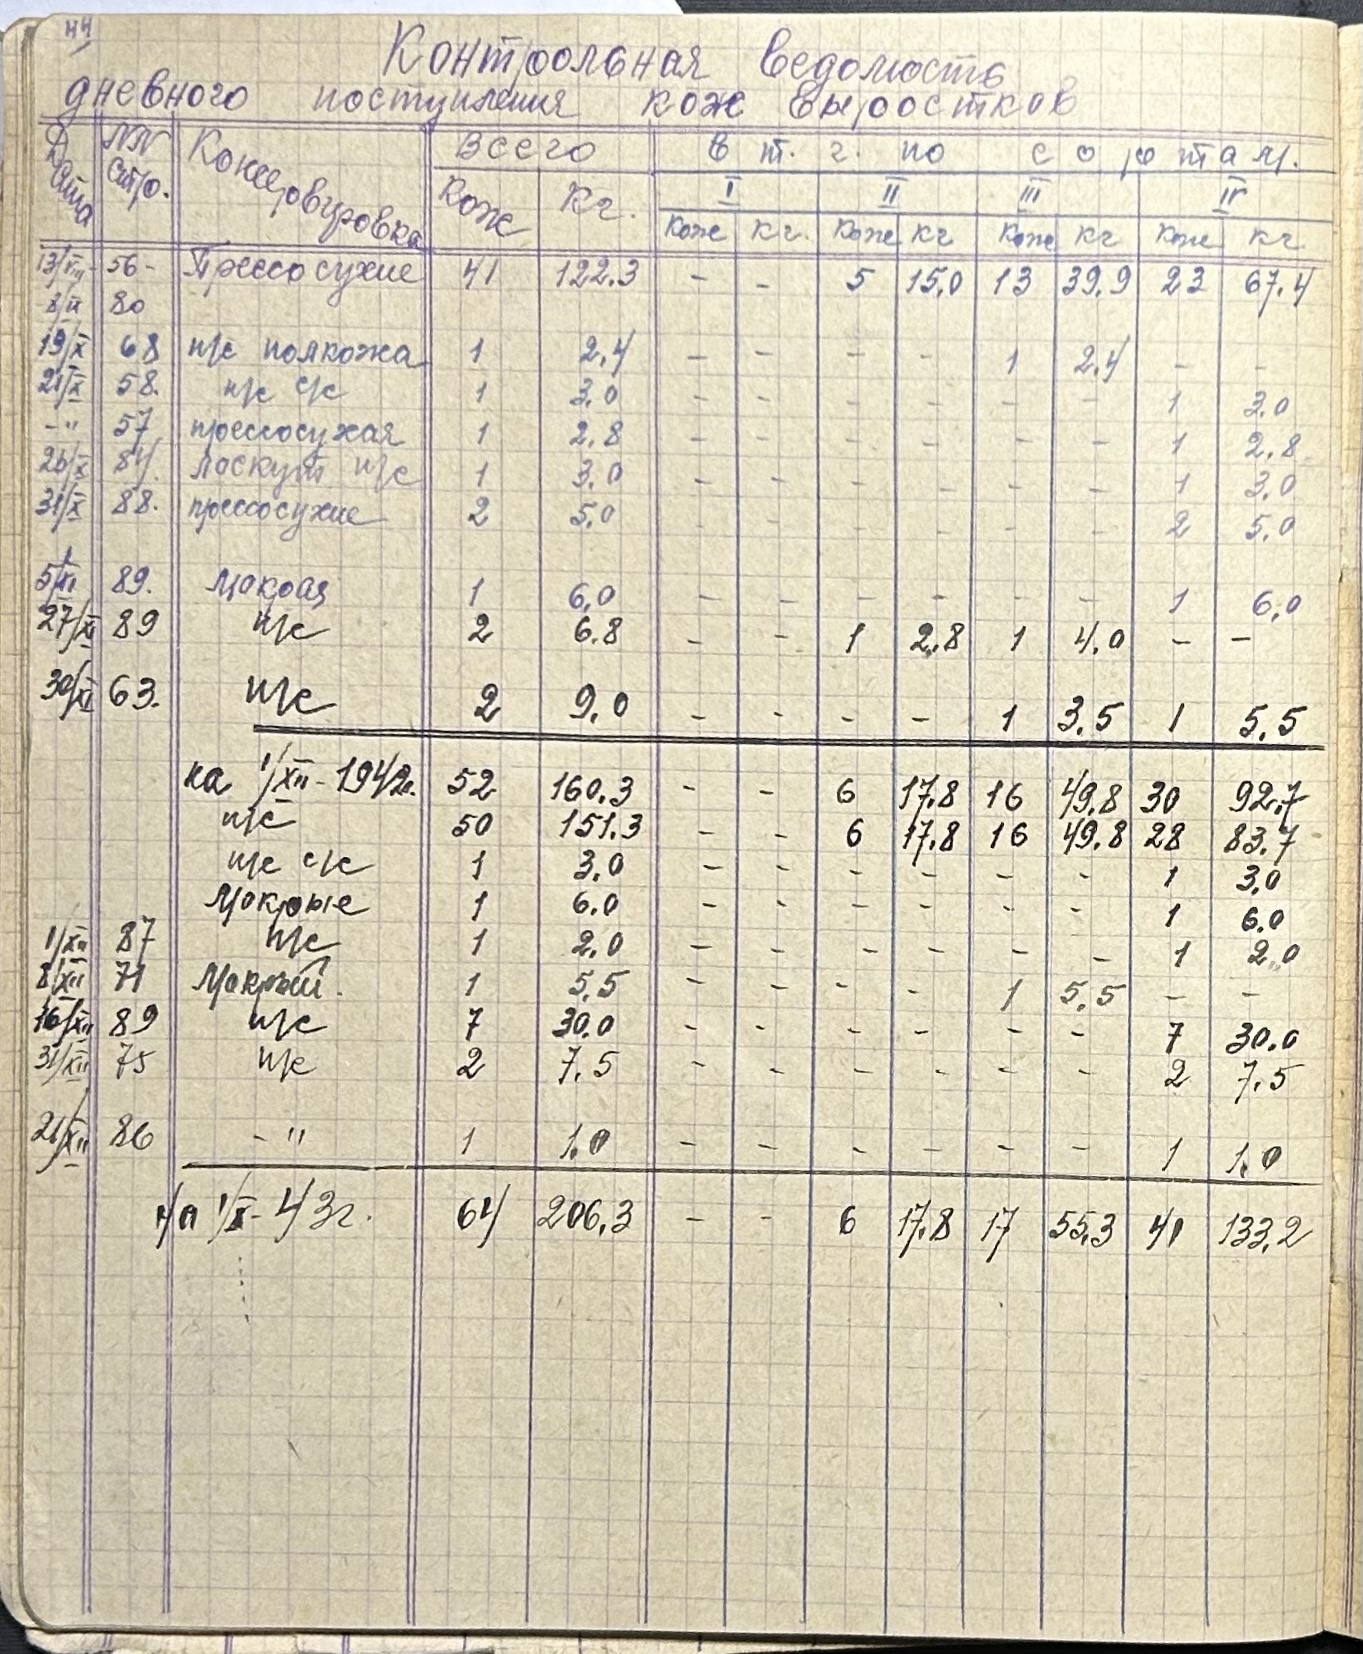 44
Контрольная ведомость
дневного поступления кож выростков
Дата №№ стр. Консервировка Всего в т. г. по сортам.
Кож Кг. I II III IV
Кож Кг. Кож кг Кож кг Кож кг.
13/VIII- 56- Прессосухие 41 122.3 - - 5 15.0 13 39.9 23 67.4
80
19/X 68 п/с полкожа 1 2.4 - - - - 1 2.4 - -
21/X 58. п/с с/с 1 3.0 - - - - - - 1 3.0
-" 57 прессосухая 1 2.8 - - - - - - 1 2.8
26/X 84. Лоскут п/с 1 3.0 - - - - - - 1 3.0
31/X 88. прессосухие 2 5.0 - - - - - - 2 5.0
5/XI 89. Мокрая 1 6.0 - - - - - - 1 6.0
27/XI 89 п/с 2 6.8 - - 1 2.8 1 4.0 - -
30/XI 63. п/с 2 9.0 - - - - 1 3.5 1 5.5
на 1/XII-1942г. 52 160.3 - - 6 17.8 16 49.8 30 92.7
п/с 50 151.3 - - 6 17.8 16 49.8 28 83.7
п/с с/с 1 3.0 - - - - - - 1 3.0
Мокрые 1 6.0 - - - - - - 1 6.0
1/XII 87 п/с 1 2.0 - - - - - - 1 2.0
8/XII 71 Мокрый. 1 5.5 - - - - 1 5.5 - -
16/XII 89 п/с 7 30.0 - - - - - - 7 30.0
31/XII 75 п/с 2 7.5 - - - - - - 2 7.5
21/XII 86 -" 1 1.0 - - - - - - 1 1.0
На 1/I-43г. 64 206.3 - - 6 17.8 17 55.3 41 133.2